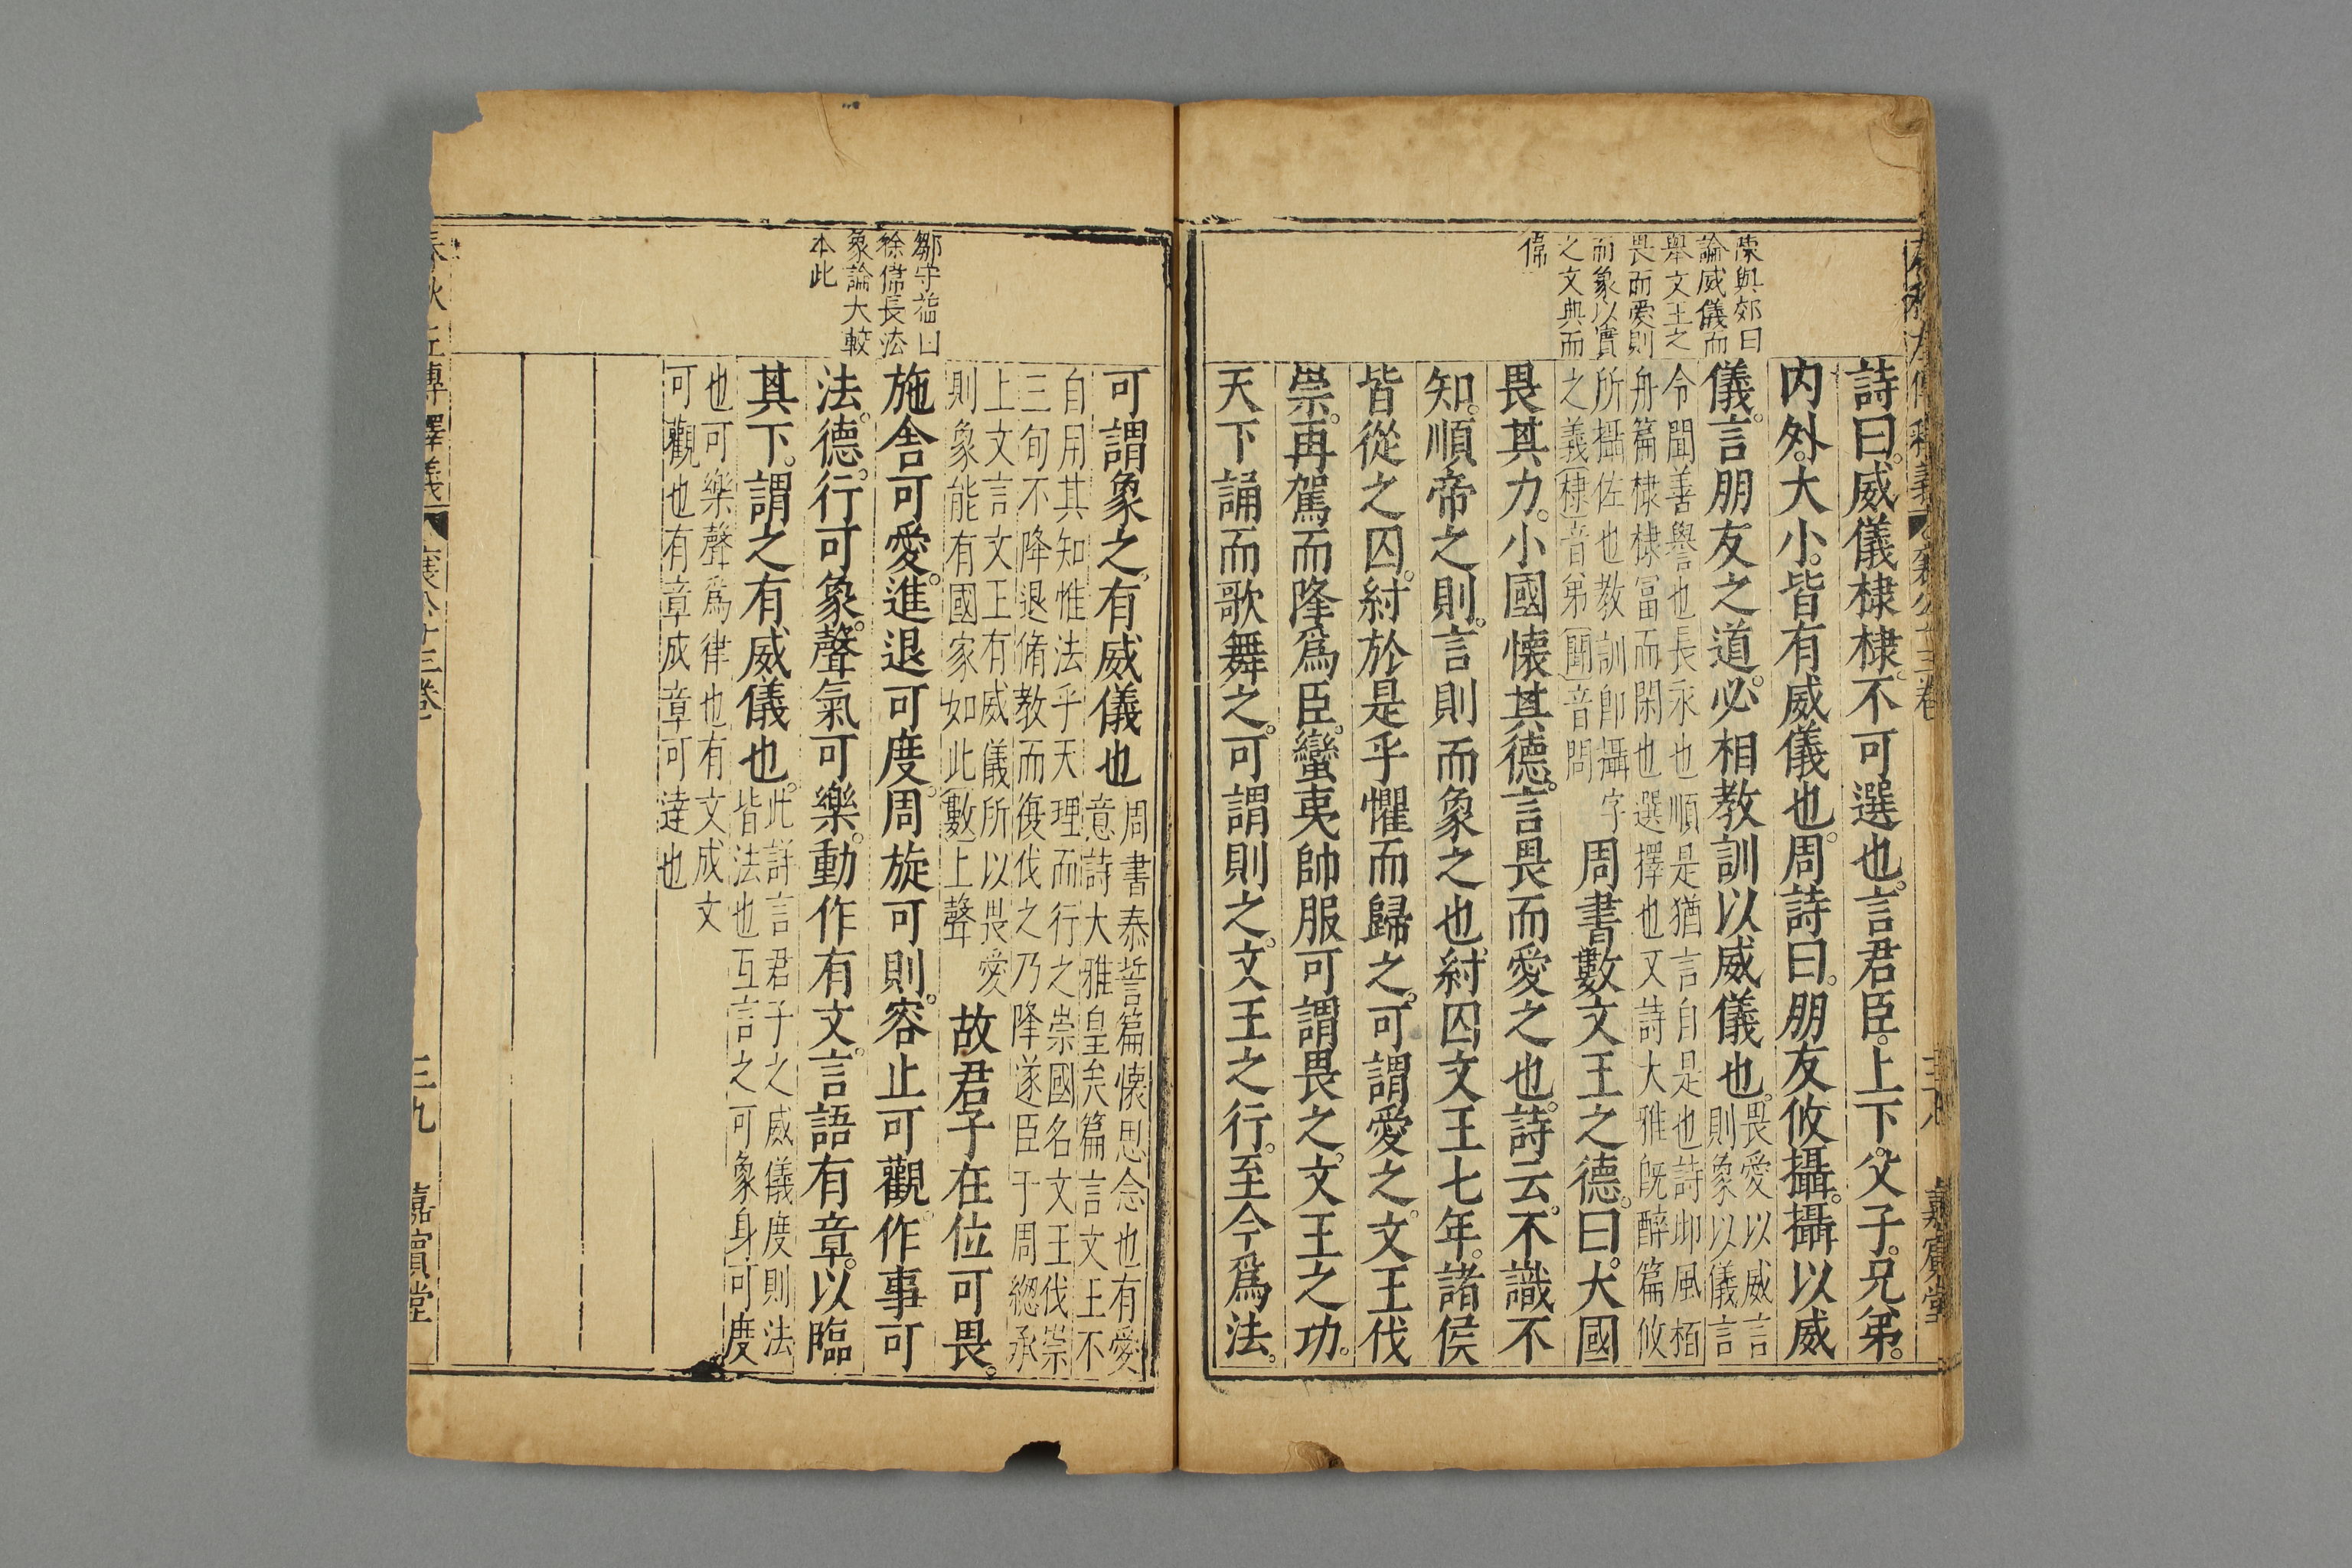 詩曰。威儀棣棣。不可選也。言君臣。上下。父子。兄弟。
内外。大小。皆有威儀也。周詩曰。朋友攸攝。攝以威
儀。言朋友之道。必相教訓以威儀也。
畏愛以威言
則象以儀言
令聞善譽也長永也順是猶言自是也詩邶風栢
舟篇棣棣冨而閑也選擇也又詩大雅旣醉篇攸
所攝佐也教訓卽攝字
之義棣音弟聞音問
周書數文王之德。曰。大國
畏其力。小國懐其德。言畏而愛之也。詩云。不識不
知。順帝之則。言則而象之也。紂囚文王七年。諸侯
皆從之囚。紂於是乎懼而歸之。可謂愛之。文王伐
崇。再駕而降爲臣。蠻夷帥服。可謂畏之。文王之功。
天下誦而歌舞之。可謂則之。文王之行。至今爲法。
陳與郊曰
論威儀而
舉文王之
畏而愛則
而象以實
之文典而
偉
嘉賓堂
可謂象之。有威儀也
周書泰誓篇懐思念也有愛
意詩大雅皇矣篇言文王不
自用其知惟法乎天理而行之崇國名文王伐崇
三旬不降退脩教而復伐之乃降遂臣于周緫承
上文言文王有威儀所以畏愛
則象能有國家如此數上聲
故君子在位可畏。
施舍可愛。進退可度。周旋可則。容止可觀。作事可
法。德行可象。聲氣可樂。動作有文。言語有章。以臨
其下。謂之有威儀也。
此詳言君子之威儀度則法
皆法也互言之可象身可度
也可樂聲爲律也有文成文
可觀也有章成章可達也
鄒守
徐偉長法
象論大較
本此
春秋左傳釋義
襄公十三卷
三九
嘉賓堂